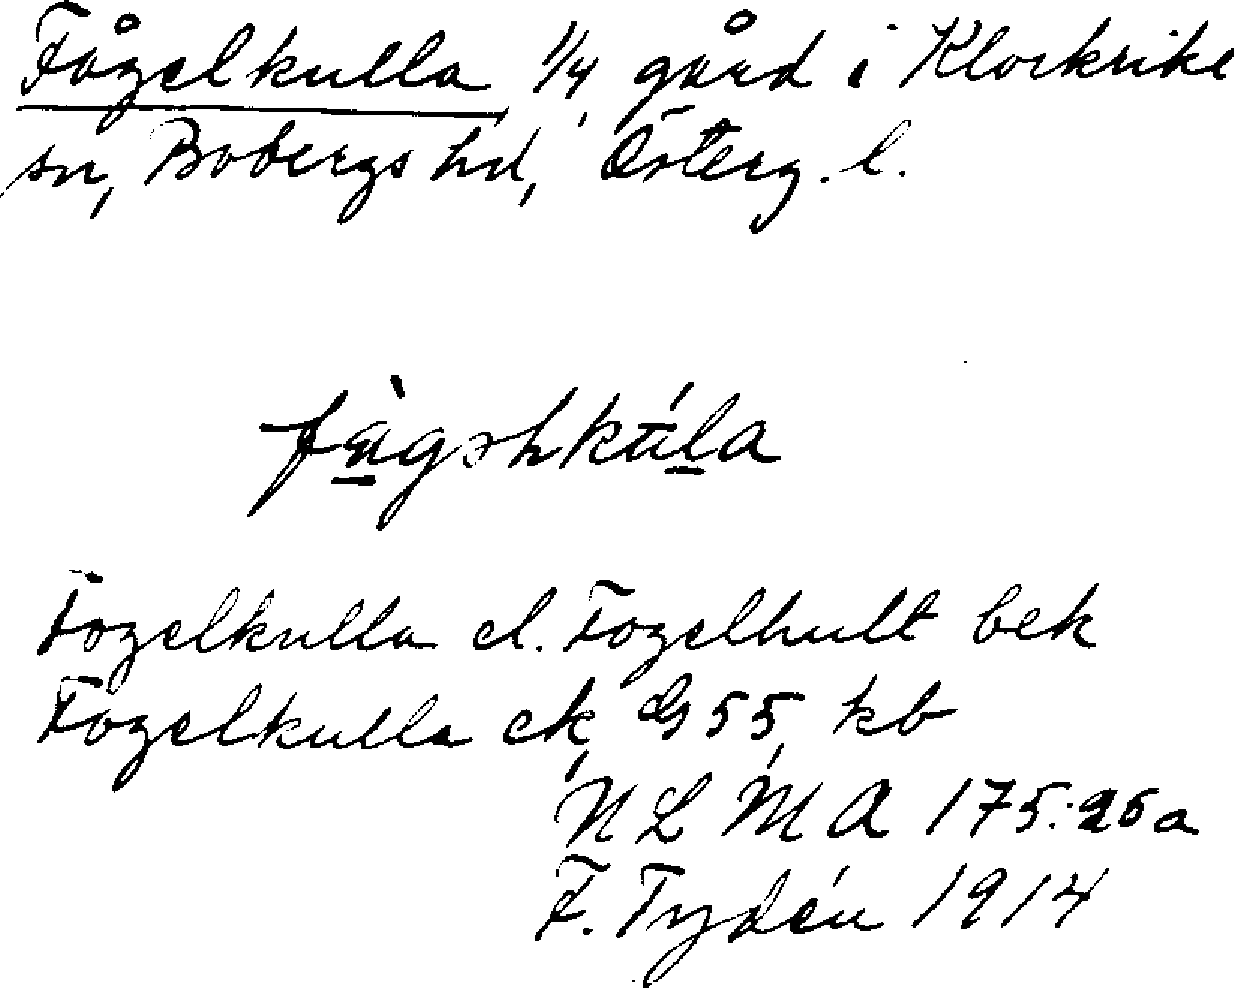 Fågelkulla 1/4 gård i Klockrike
sn, Bobergs hd, Österg. l.
Fogelkulla el. Fogelhult bek
Fogelkulla ek, G 55, kb
N L M A 175:25a
F. Tydén 1914